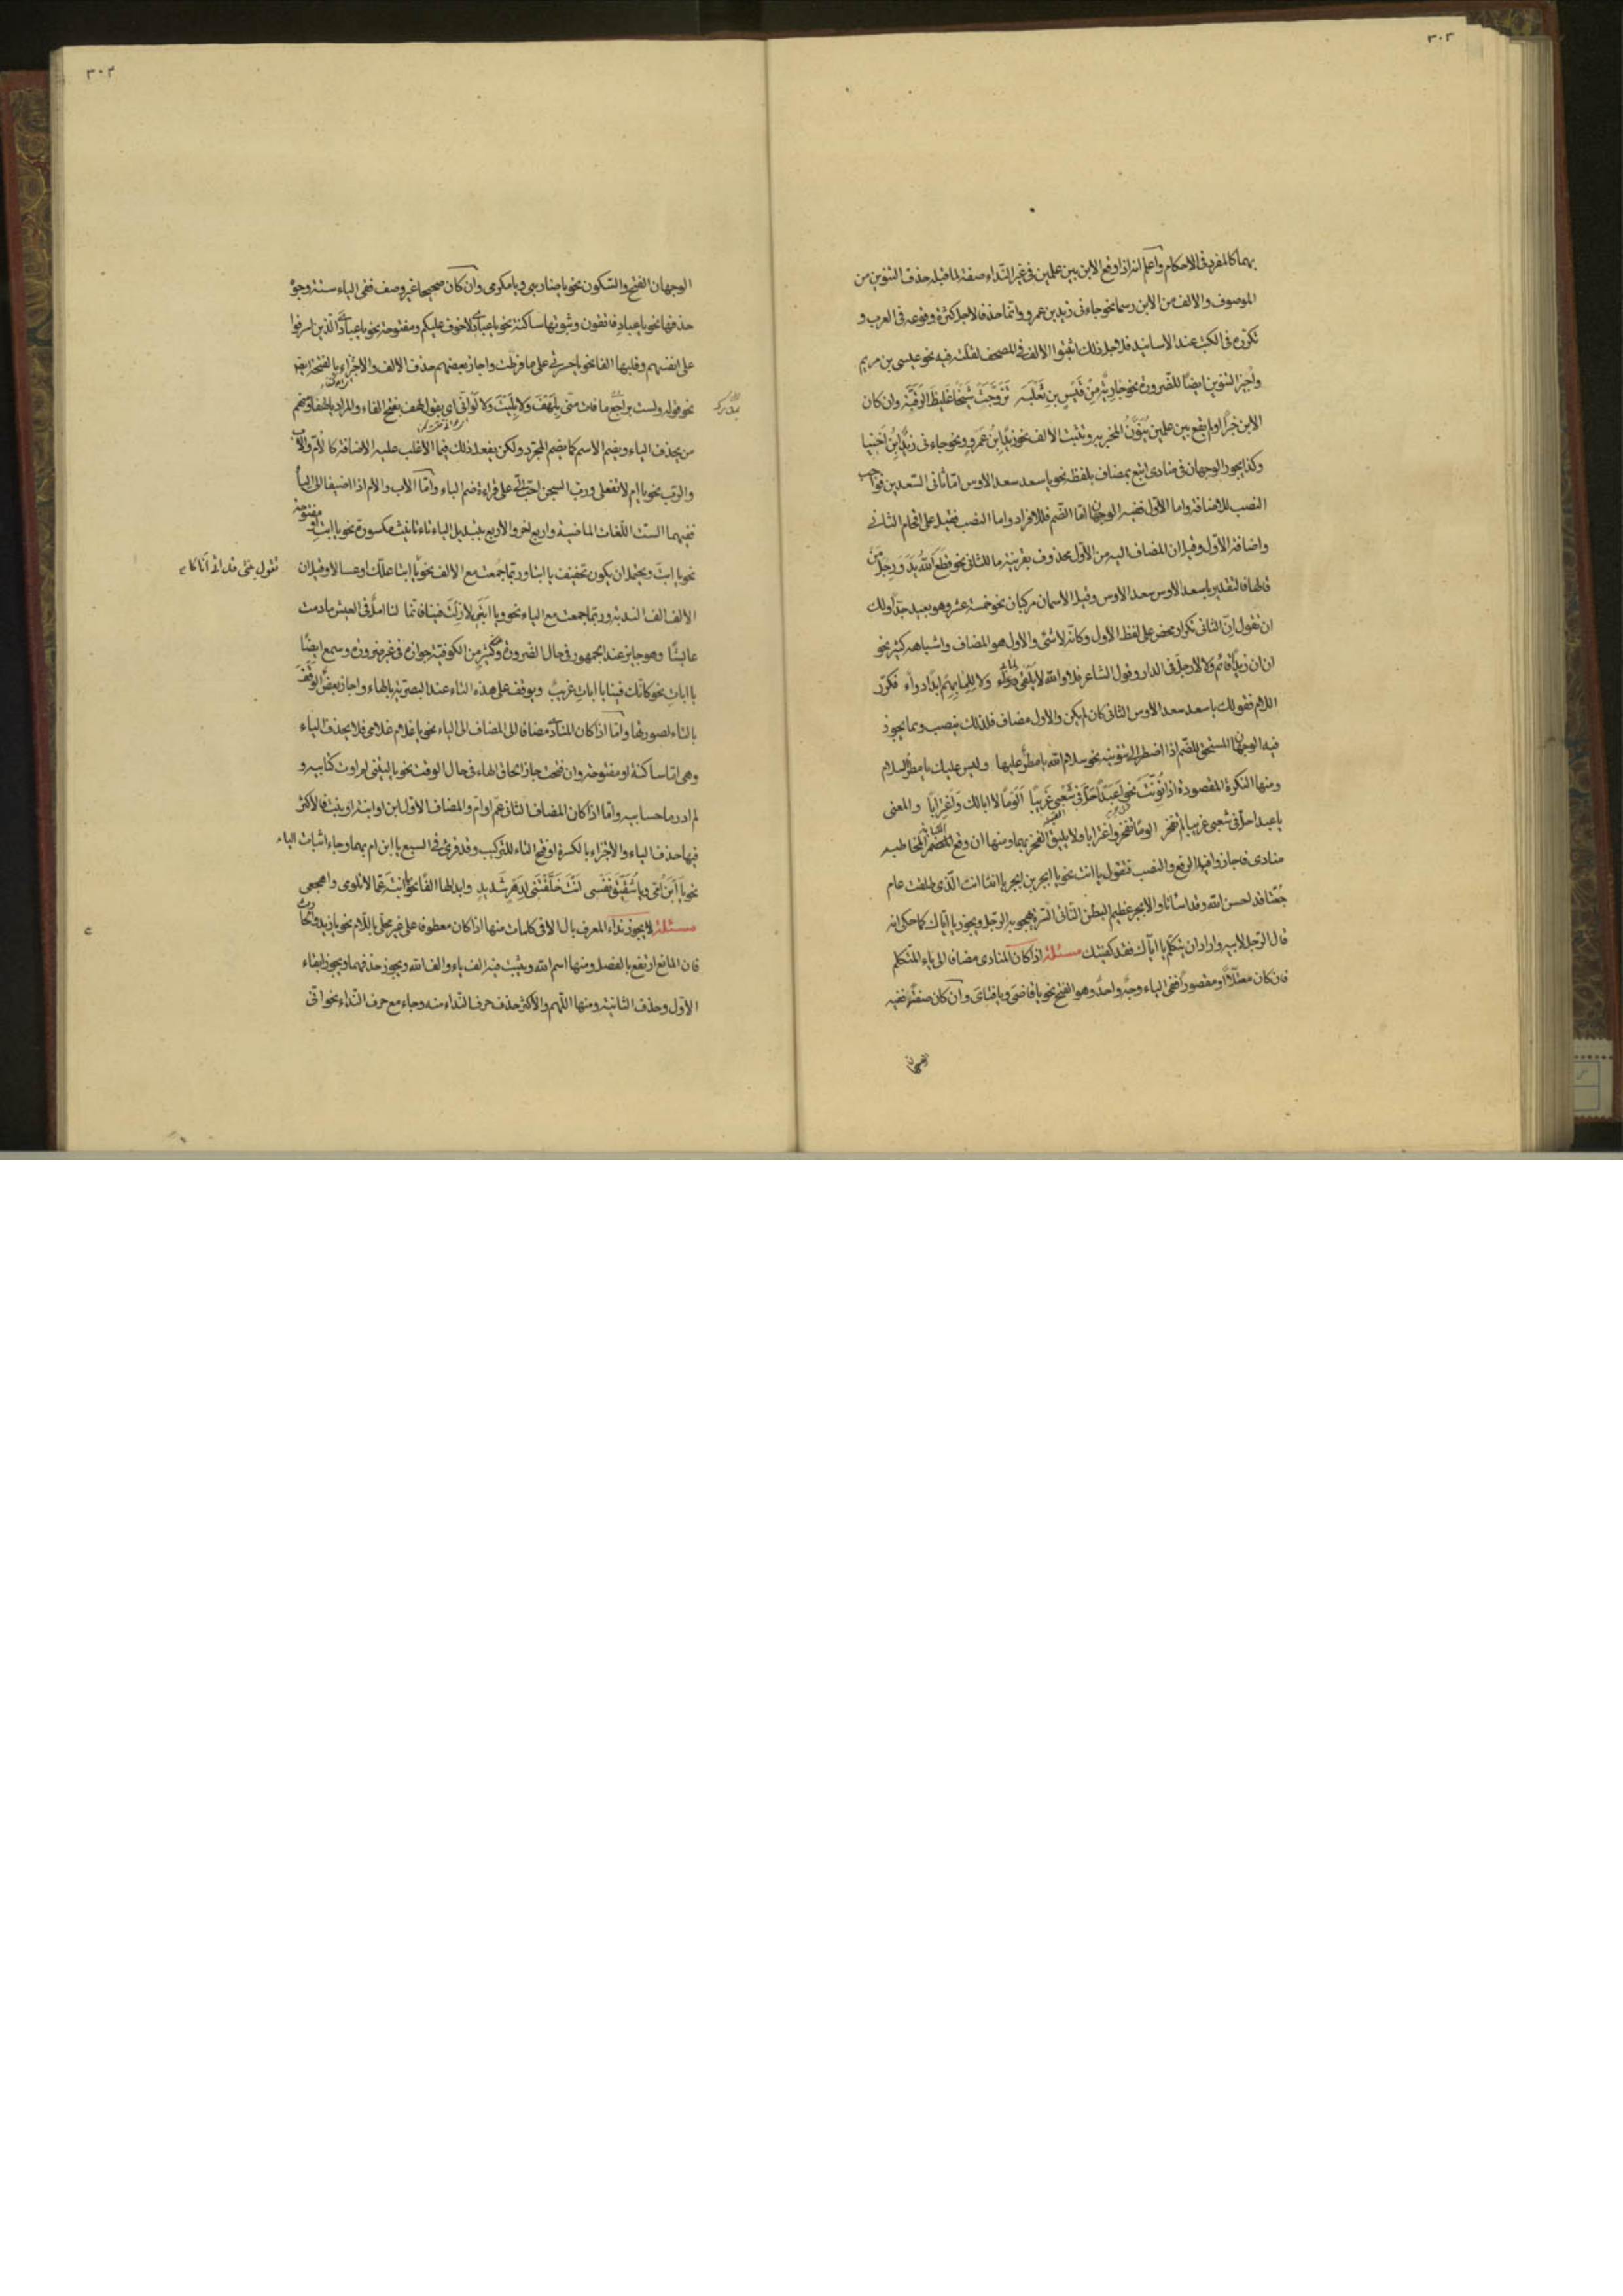 ٣٠٢
بهما كالمفرد فى الاحكام واعلم انه اذا وقع الابن بين علمين فى غير النداء صفة لما قبله حذف التنوين من
الموصوف والالف من الابن رسما نحو جاءنى زيد بن عمرو وانما حذفا لاجل كثرة وقوعه فى العرب و
تكرره فى الكتب عند الاسانيد فلاجل ذلك اثبتوا الالف فى المصحف لقلته فيه نحو عيسى بن مريم
واجيز التنوين ايضًا للضرورة نحو جارية من قيس بن ثعلبه تزوجت شيخا غليظ الرقبة وان كان
الابن خبرًا او لم يقع بين علمين ينون المخبر به وتثبت الالف نحو زيد ابن عمرو ونحو جاءنى زيد ابن اخينا
وكذا يجوز الوجهان فى منادى اتبع بمضاف بلفظه نحو يا سعد سعد الاوس اما ثانى السعدين فواجب
النصب للاضافة واما الاول ففيه الوجهان اما الضم فللافراد واما النصب فقيل على اقحام الثانى
واضافة الاول وقيل ان المضاف اليه من الاول محذوف بقرينة ما للثانى نحو قطع الله يد ورجل من
قالها فالتقدير يا سعد الاوس سعد الاوس وقيل الاسمان مركبان نحو خمسة عشر وهو بعيد جدًا ولك
ان تقول ان الثانى تكرار محض على لفظ الاول وكانه لا شئ والاول هو المضاف واشباهه كثير نحو
ان ان زيدًا قائم ولا لا رجل فى الدار وقول الشاعر فلا والله لا يلفى لما بى ولا للما بهم ابدًا دواء فكرر
اللام فقولك يا سعد سعد الاوس الثانى كان لم يكن والاول مضاف فلذلك ينصب ومما يجوز
فيه الوجهان المستحق للضم اذا اضطر الى تنوينه نحو سلام الله يا مطر عليها وليس عليك يا مطر السلام
ومنها النكرة المقصودة اذا نونت نحو اعبدًا حل فى شعبى غريبا ألؤما لا ابا لك واغترابا والمعنى
يا عبد احل فى شعبى غريبا لم تفخر الؤما تفخر واغترابا ولا يليق الفخر بهما ومنها ان وقع المضمر المخاطب
منادى فاجاز وافيه الرفع والنصب فتقول يا انت نحو يا ابجر بن ابجر يا انتا انت الذى طلقت عام
جعتا قد احسن الله وقد اساتا والابجر عظيم البطن الناتى السرة يهجو به الرجل ويجوز يا اياك كما حكى انه
قال الرجل لابيه واراد ان يتكلم يا اياك فقد كفيتك مسئلة اذا كان المنادى مضافا الى ياء المتكلم
فان كان معتلًا او مقصورًا ففى الياء وجه واحد وهو الفتح نحو يا قاضى ويا فتاى وان كان صفة ففيه
الوجهان
٣٠٣
الوجهان الفتح والسكون نحو يا ضاربى ويا مكرمى وان كان صحيحا غير وصف ففى الياء ستة وجوه
حذفها نحو يا عباد فاتقون وثبوتها ساكنة نحو يا عبادى لا خوف عليكم ومفتوحة نحو يا عبادى الذين اسرفوا
على انفسهم وقلبها الفا نحو يا حسرتى على ما فرطت واجاز بعضهم حذف الالف والاجتزاء بالفتحة
نحو قوله ولست براجع ما فات منى بلهف ولا بليت ولا لو انى اى بقول لهف بفتح الفاء والمراد يا لهفا ومنهم
من يحذف الياء ويضم الاسم كما يضم المجرد ولكن يفعل ذلك فيما الاغلب عليه الاضافة كالام والاب
والرب نحو يا ام لا تفعلى ورب السجن احب الى على قراءة ضم الباء واما الاب والام اذا اضيفا الى الياء
ففيهما الست اللغات الماضية واربع اخر والاربع بتبديل الياء تاء تانيث مكسورة نحو يا ابت او مفتوحة
نحو يا ابت ويحتمل ان يكون تخفيف يا ابتا وربما جمعت مع الالف نحو يا ابتا علك او عساك وقيل ان
تقول بنتى قد انى اناكا
الالف الف الندبة وربما جمعت مع الياء نحو ويا ابتى لا زلت فينا فانما لنا امل فى العيش ما دمت
عايشًا وهو جايز عند الجمهور فى حال الضرورة وكثير من الكوفية جوازه فى غير ضرورة وسمع ايضًا
يا ابات نحو كانك فينا يا ابات غريب ويوقف على هذه التاء عند البصرية بالهاء واجاز بعض الوقف
بالتاء لصورتها واما اذا كان المنادى مضافا الى المضاف الى الياء نحو يا غلام غلامى فلا يحذف الياء
وهى اما ساكنة او مفتوحة وان فتحت جاز الحاق الهاء فى حال الوقف نحو يا ليتنى لم اوت كتابيه و
لم ادر ما حسابيه واما اذا كان المضاف الثانى عم او ام والمضاف الاول ابن او ابنة او بنت فالاكثر
فيها حذف الياء والاجتزاء بالكسرة او فتح التاء للتركيب وقد قرئ فى السبع يا ابن ام بهما وجاء اثبات الياء
نحو يا ابن امى ويا شقيق نفسى انت خلفتنى لدهر شديد وابدلها الفًا نحو يا ابنة عما لا تلومى واهجعى
مسئلة لا يجوز نداء المعرف بال الا فى كلمات منها اذا كان معطوفا على غير محلى باللام نحو يا زيد والحارث
فان المانع ارتفع بالفصل ومنها اسم الله ويثبت فيه الف ياء والف الله ويجوز حذفهما ويجوز ابقاء
الاول وحذف الثانية ومنها اللهم والاكثر حذف حرف النداء منه وجاء مع حرف النداء نحو انى